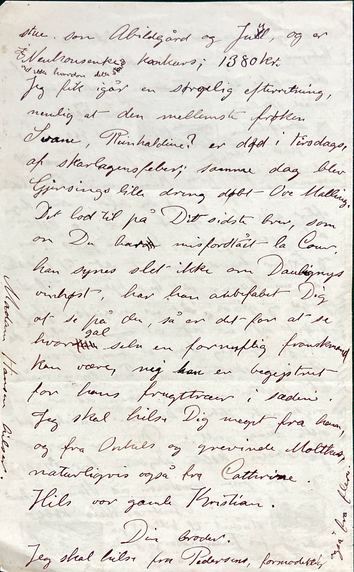 stue. som Abildgård og Juul, og er
Neuhonsenske konkurs; 1380 kr.
Jeg fik igår en sørgelig efterretning,
nemlig at den mellemste frøken
Svane, Reinhaldine? er død i tirsdags,
af skarlagensfeber; samme dag blev
Gjersings lille dreng døbt Ove Malling.
Det lod til på Dit sidste brev, som
om Du misforstått la Cour.
han synes slet ikke om Daubignys
vinhøst, har han anbefalet Dig
at se på den, så er det for at se
hvor gal selv en fornuftig franskmand
kan være, og en begejstret
for hans frugttræer i sæden.
Jeg skal hilse Dig meget fra ham,
og fra Onkels og grevinde Moltkes,
naturligvis også fra Cathrine.
Hils vor gamle Kristian.
Din broder.
Jeg skal hilse fra Pedersens, formodentlig
også fra flere.
Madam Hansen hilser.